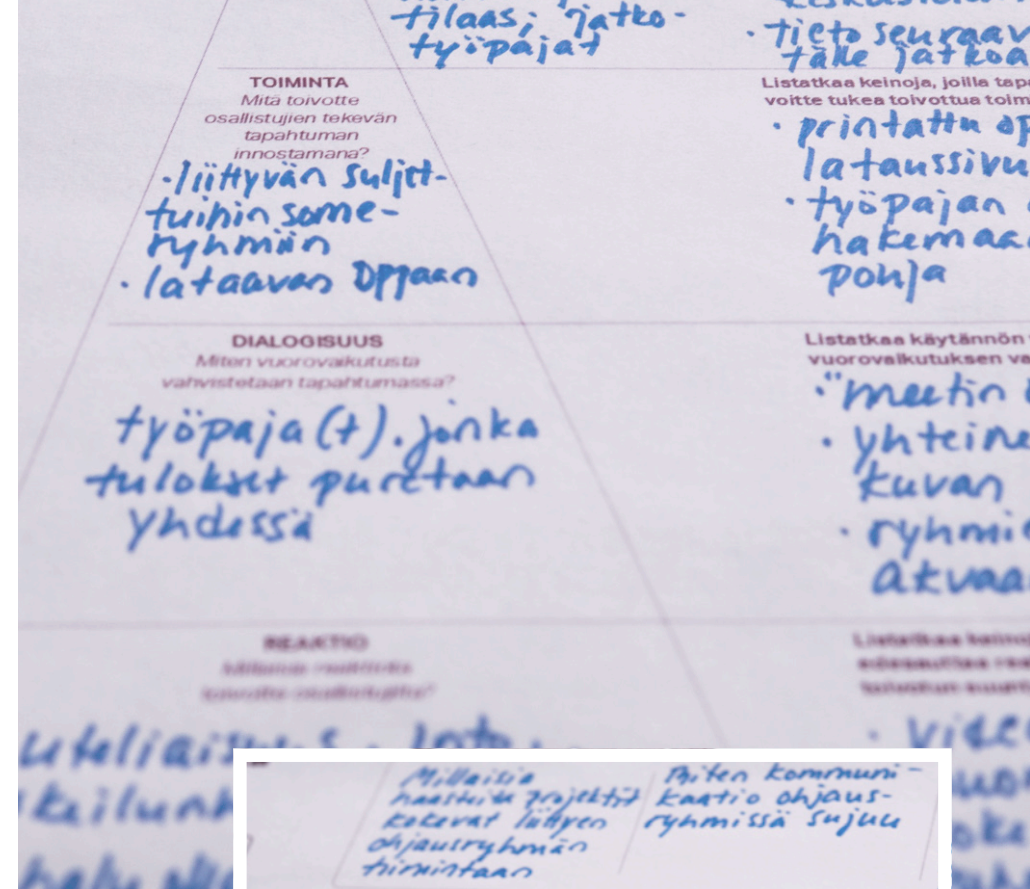 tilaas; jatko-
työpajat
• tieto seuraav
tälle jatkoa
TOIMINTA
Mitä toivotte
osallistujien tekevän
tapahtuman
innostamana?
• liittyvän suljet-
tuihin some-
ryhmiin
• lataavan oppaan
Listatkaa keinoja, joilla tap
voitte tukea toivottua toim
• printattu op
lataussivu
• työpajan
hakemaa
pohja
DIALOGISUUS
Miten vuorovaikutusta
vahvistetaan tapahtumassa?
työpaja(t), jonka
tulokset puretaan
yhdessä
Listatkaa käytännön
vuorovaikutuksen va
• "meetin
• yhteine
kuvan
• ryhmi
akvaa
REAKTIO
Millaisia reaktioita
toivotte osallistujilta?
Listatkaa keino
edesauttaa rea
toivotun suunt
uteliaisuus, into,
• vide
Millaisia
haasteita projektit
kokevat liittyen
ohjausryhmän
toimintaan
Miten kommuni-
kaatio ohjaus-
ryhmissä sujuu